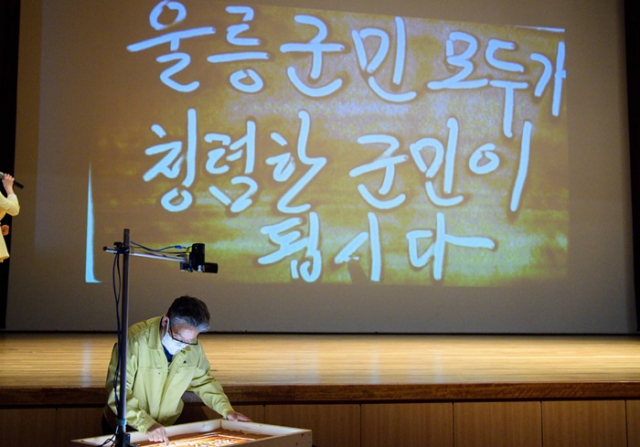 울릉군민 모두가
청렴한 군민이
됩시다